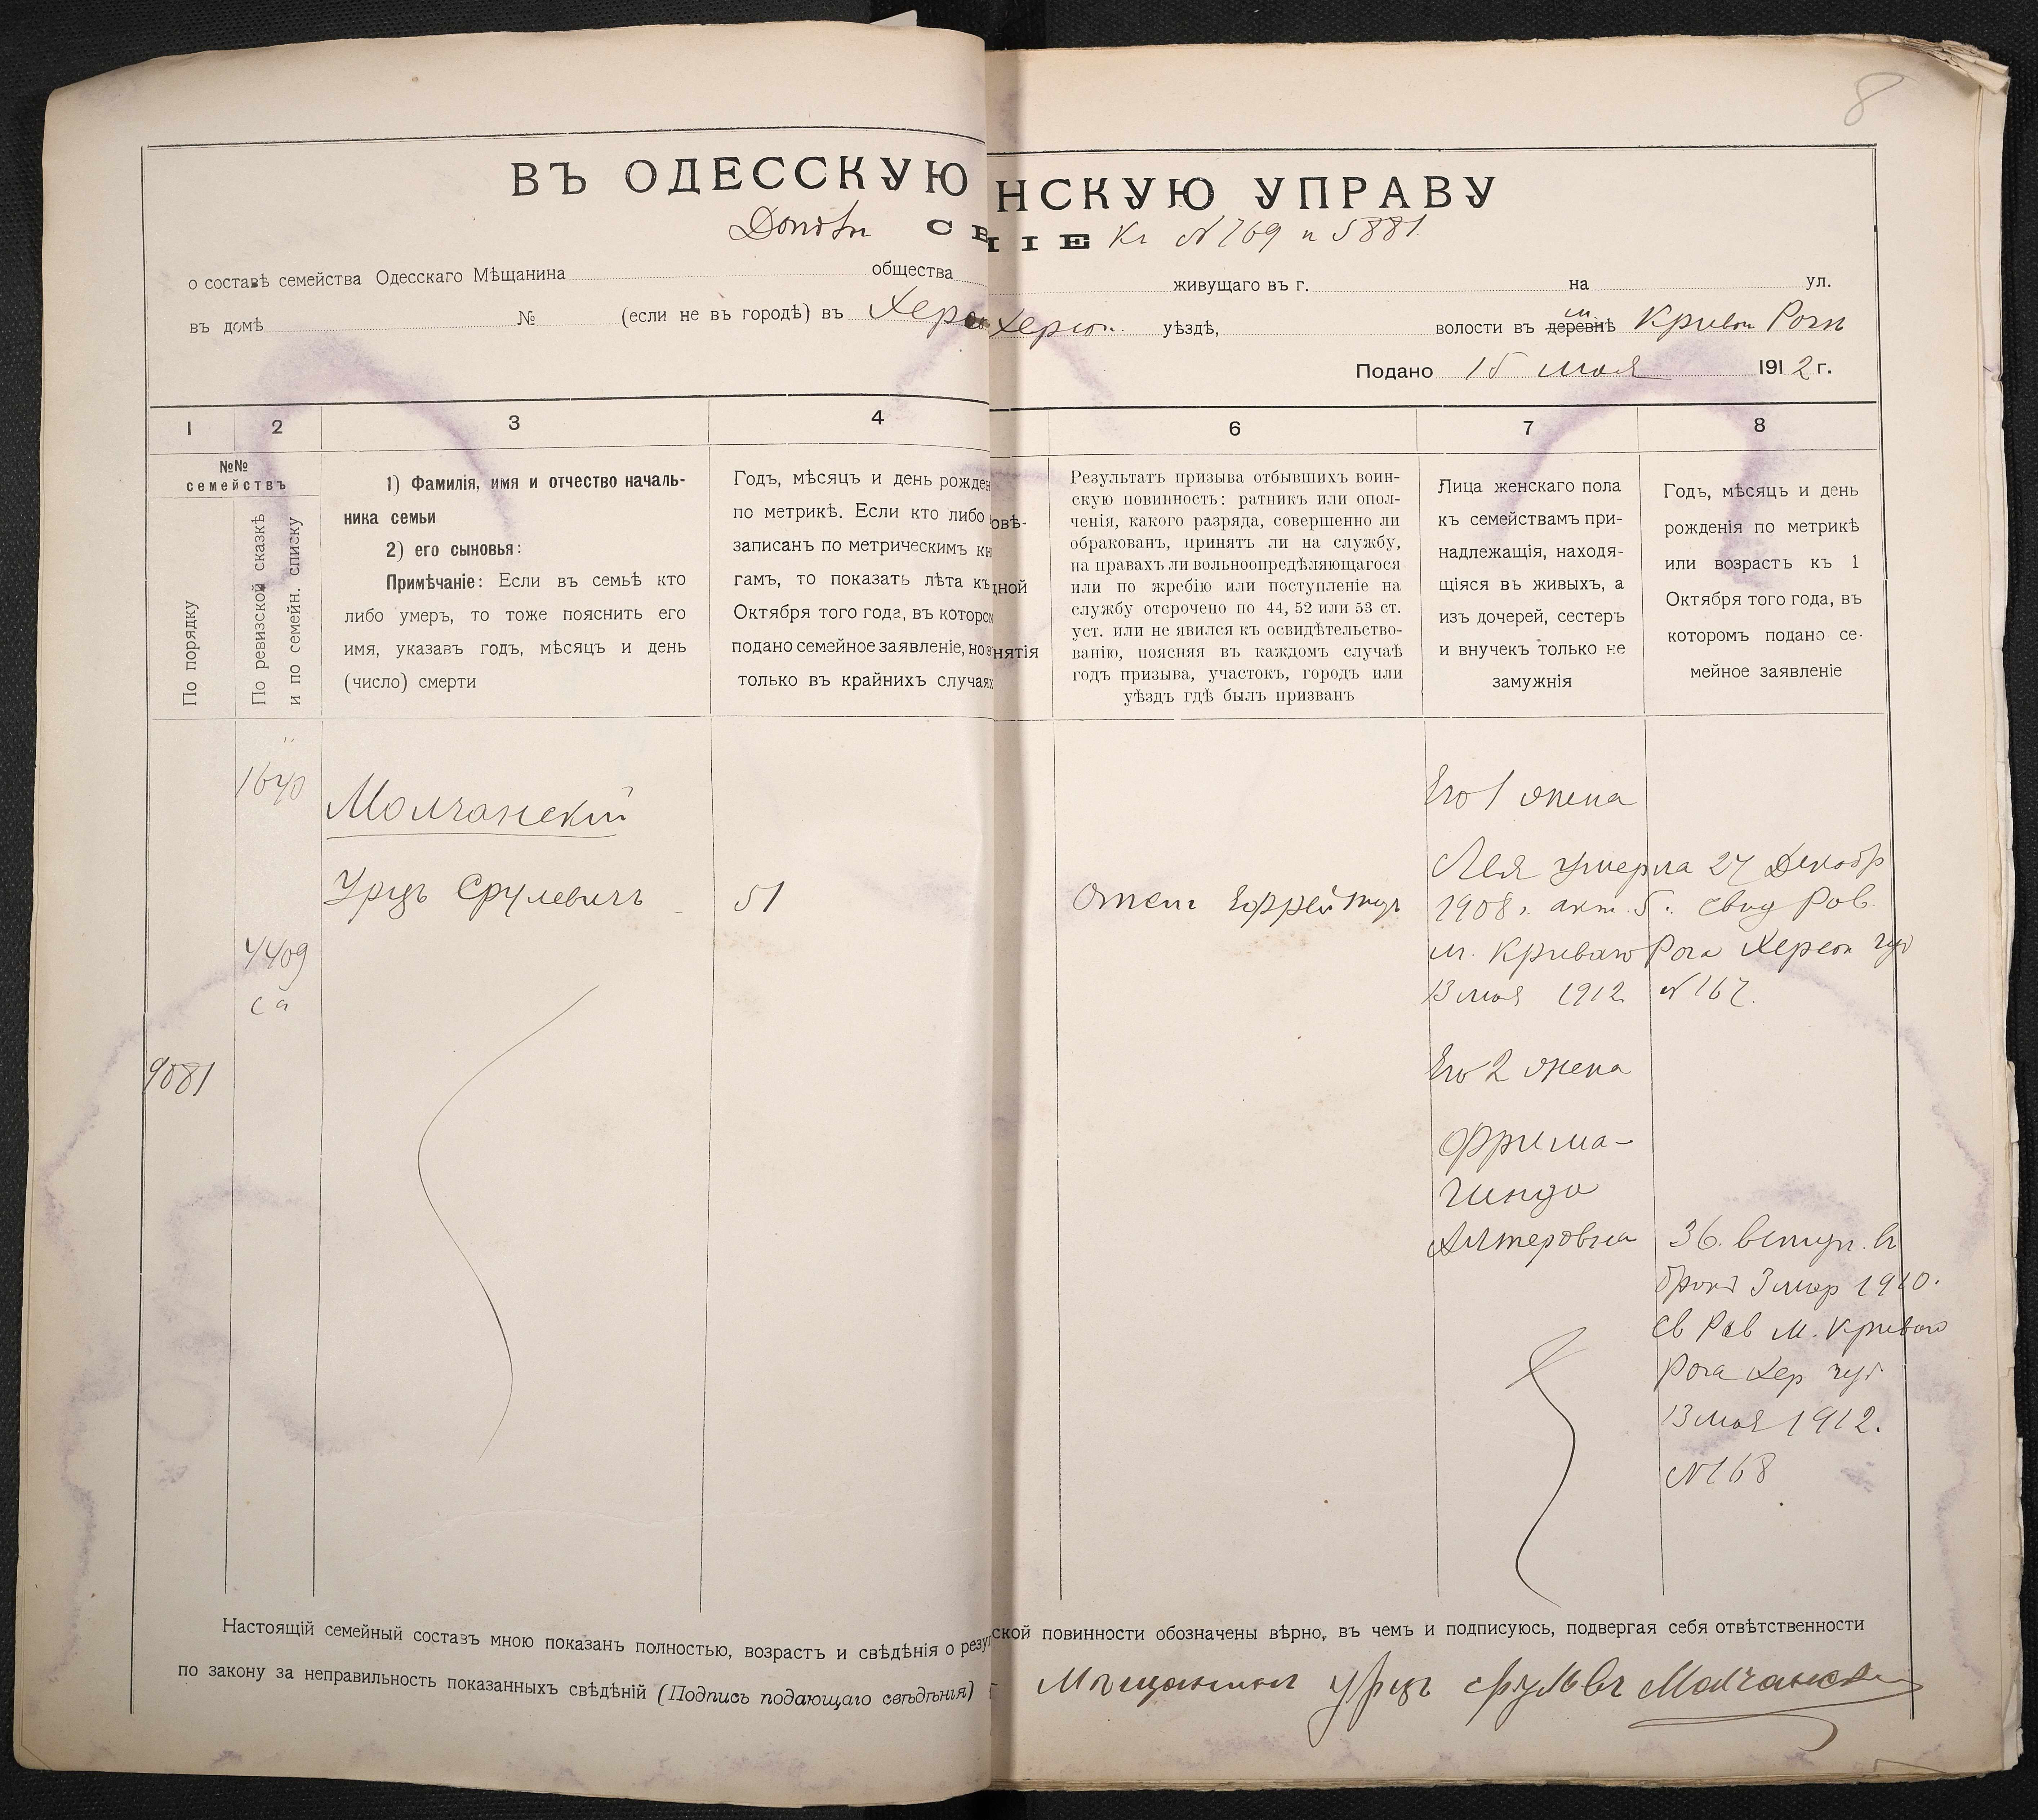 8
ВЪ ОДЕССКУЮ НСКУЮ УПРАВУ
СВ НІЕ № 769 и 5881
о составѣ семейства Одесскаго Мѣщанина общества живущаго въ г. на ул.
въ домѣ № (если не въ городѣ) въ Херсон Херсон. уѣздѣ, волости въ деревнѣ м. Кривом Рогѣ
Подано 15 мая 1912 г.
1 2 3 4 6 7 8
№№
семействъ
По порядку
По ревизской сказкѣ
и по семейн. списку
1) Фамилія, имя и отчество началь-
ника семьи
2) его сыновья:
Примѣчаніе: Если въ семьѣ кто
либо умеръ, то тоже пояснить его
имя, указавъ годъ, мѣсяцъ и день
(число) смерти
Годъ, мѣсяцъ и день рожден
по метрикѣ. Если кто либо
записанъ по метрическимъ кн
гамъ, то показать лѣта къ
Октября того года, въ котором
подано семейное заявленіе, но э
только въ крайнихъ случаях
овѣ-
дной
нятія
Результатъ призыва отбывшихъ воин-
скую повинность: ратникъ или опол-
ченія, какого разряда, совершенно ли
обракованъ, принятъ ли на службу,
на правахъ ли вольноопредѣляющагося
или по жребію или поступленіе на
службу отсрочено по 44, 52 или 53 ст.
уст. или не явился къ освидѣтельство-
ванію, поясняя въ каждомъ случаѣ
годъ призыва, участокъ, городъ или
уѣздъ гдѣ былъ призванъ
Лица женскаго пола
къ семействамъ при-
надлежащія, находя-
щіяся въ живыхъ, а
изъ дочерей, сестеръ
и внучекъ только не
замужнія
Годъ, мѣсяцъ и день
рожденія по метрикѣ
или возрастъ къ 1
Октября того года, въ
которомъ подано се-
мейное заявленіе
1640
Молчанскій
Урцъ Срулевичъ
51
4409
9081
Ефрейтор
Его 1 жена
Лея умерла 27 Декабр
1908 г. акт. 5. свид Рав.
м. Криваго Рога Херсон губ
13 мая 1912 № 167.
Его 2 жена
Фрима-
Гинда
Алтеровна
36. вступ. в
брак 3 мар 1910.
св Рав м. Криваго
Рога Хер губ
13 мая 1912.
№ 168
Настоящій семейный составъ мною показанъ полностью, возрастъ и свѣдѣнія о резул ской повинности обозначены вѣрно, въ чемъ и подписуюсь, подвергая себя отвѣтственности
по закону за неправильность показанныхъ свѣдѣній (Подпись подающаго свѣдѣнія) Мѣщанинъ Урцъ Срулевъ Молчански